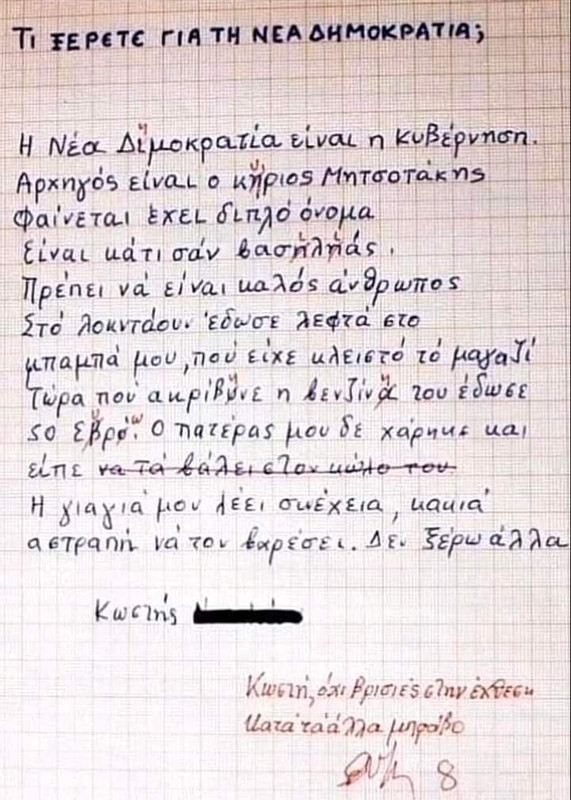 ΤΙ ΞΕΡΕΤΕ ΓΙΑ ΤΗ ΝΕΑ ΔΗΜΟΚΡΑΤΙΑ;
Η Νέα Δίμοκρατία είναι η κυβέρνηση.
Αρχηγός είναι ο κήριος Μητσοτάκης
Φαίνεται έχει διπλό όνομα
Είναι κάτι σάν βασηληάς.
Πρέπει νά είναι καλός άνθρωπος
Στό λοκντάουν έδωσε λεφτά στο
μπαμπά μου, πού είχε κλειστό τό μαγαζί
Τώρα πού ακρίβυνε η βενζίνα του έδωσε
50 εβρό. Ο πατέρας μου δε χάρηκε και
είπε να τά βάλει στον κώλο του
Η γιαγιά μου λέει συνέχεια, κακιά
αστραπή νά τον βαρέσει. Δεν ξέρω άλλα
Κωστής
Κωστή, όχι βρισιές στην έκθεση
κατά τα άλλα μπράβο
8